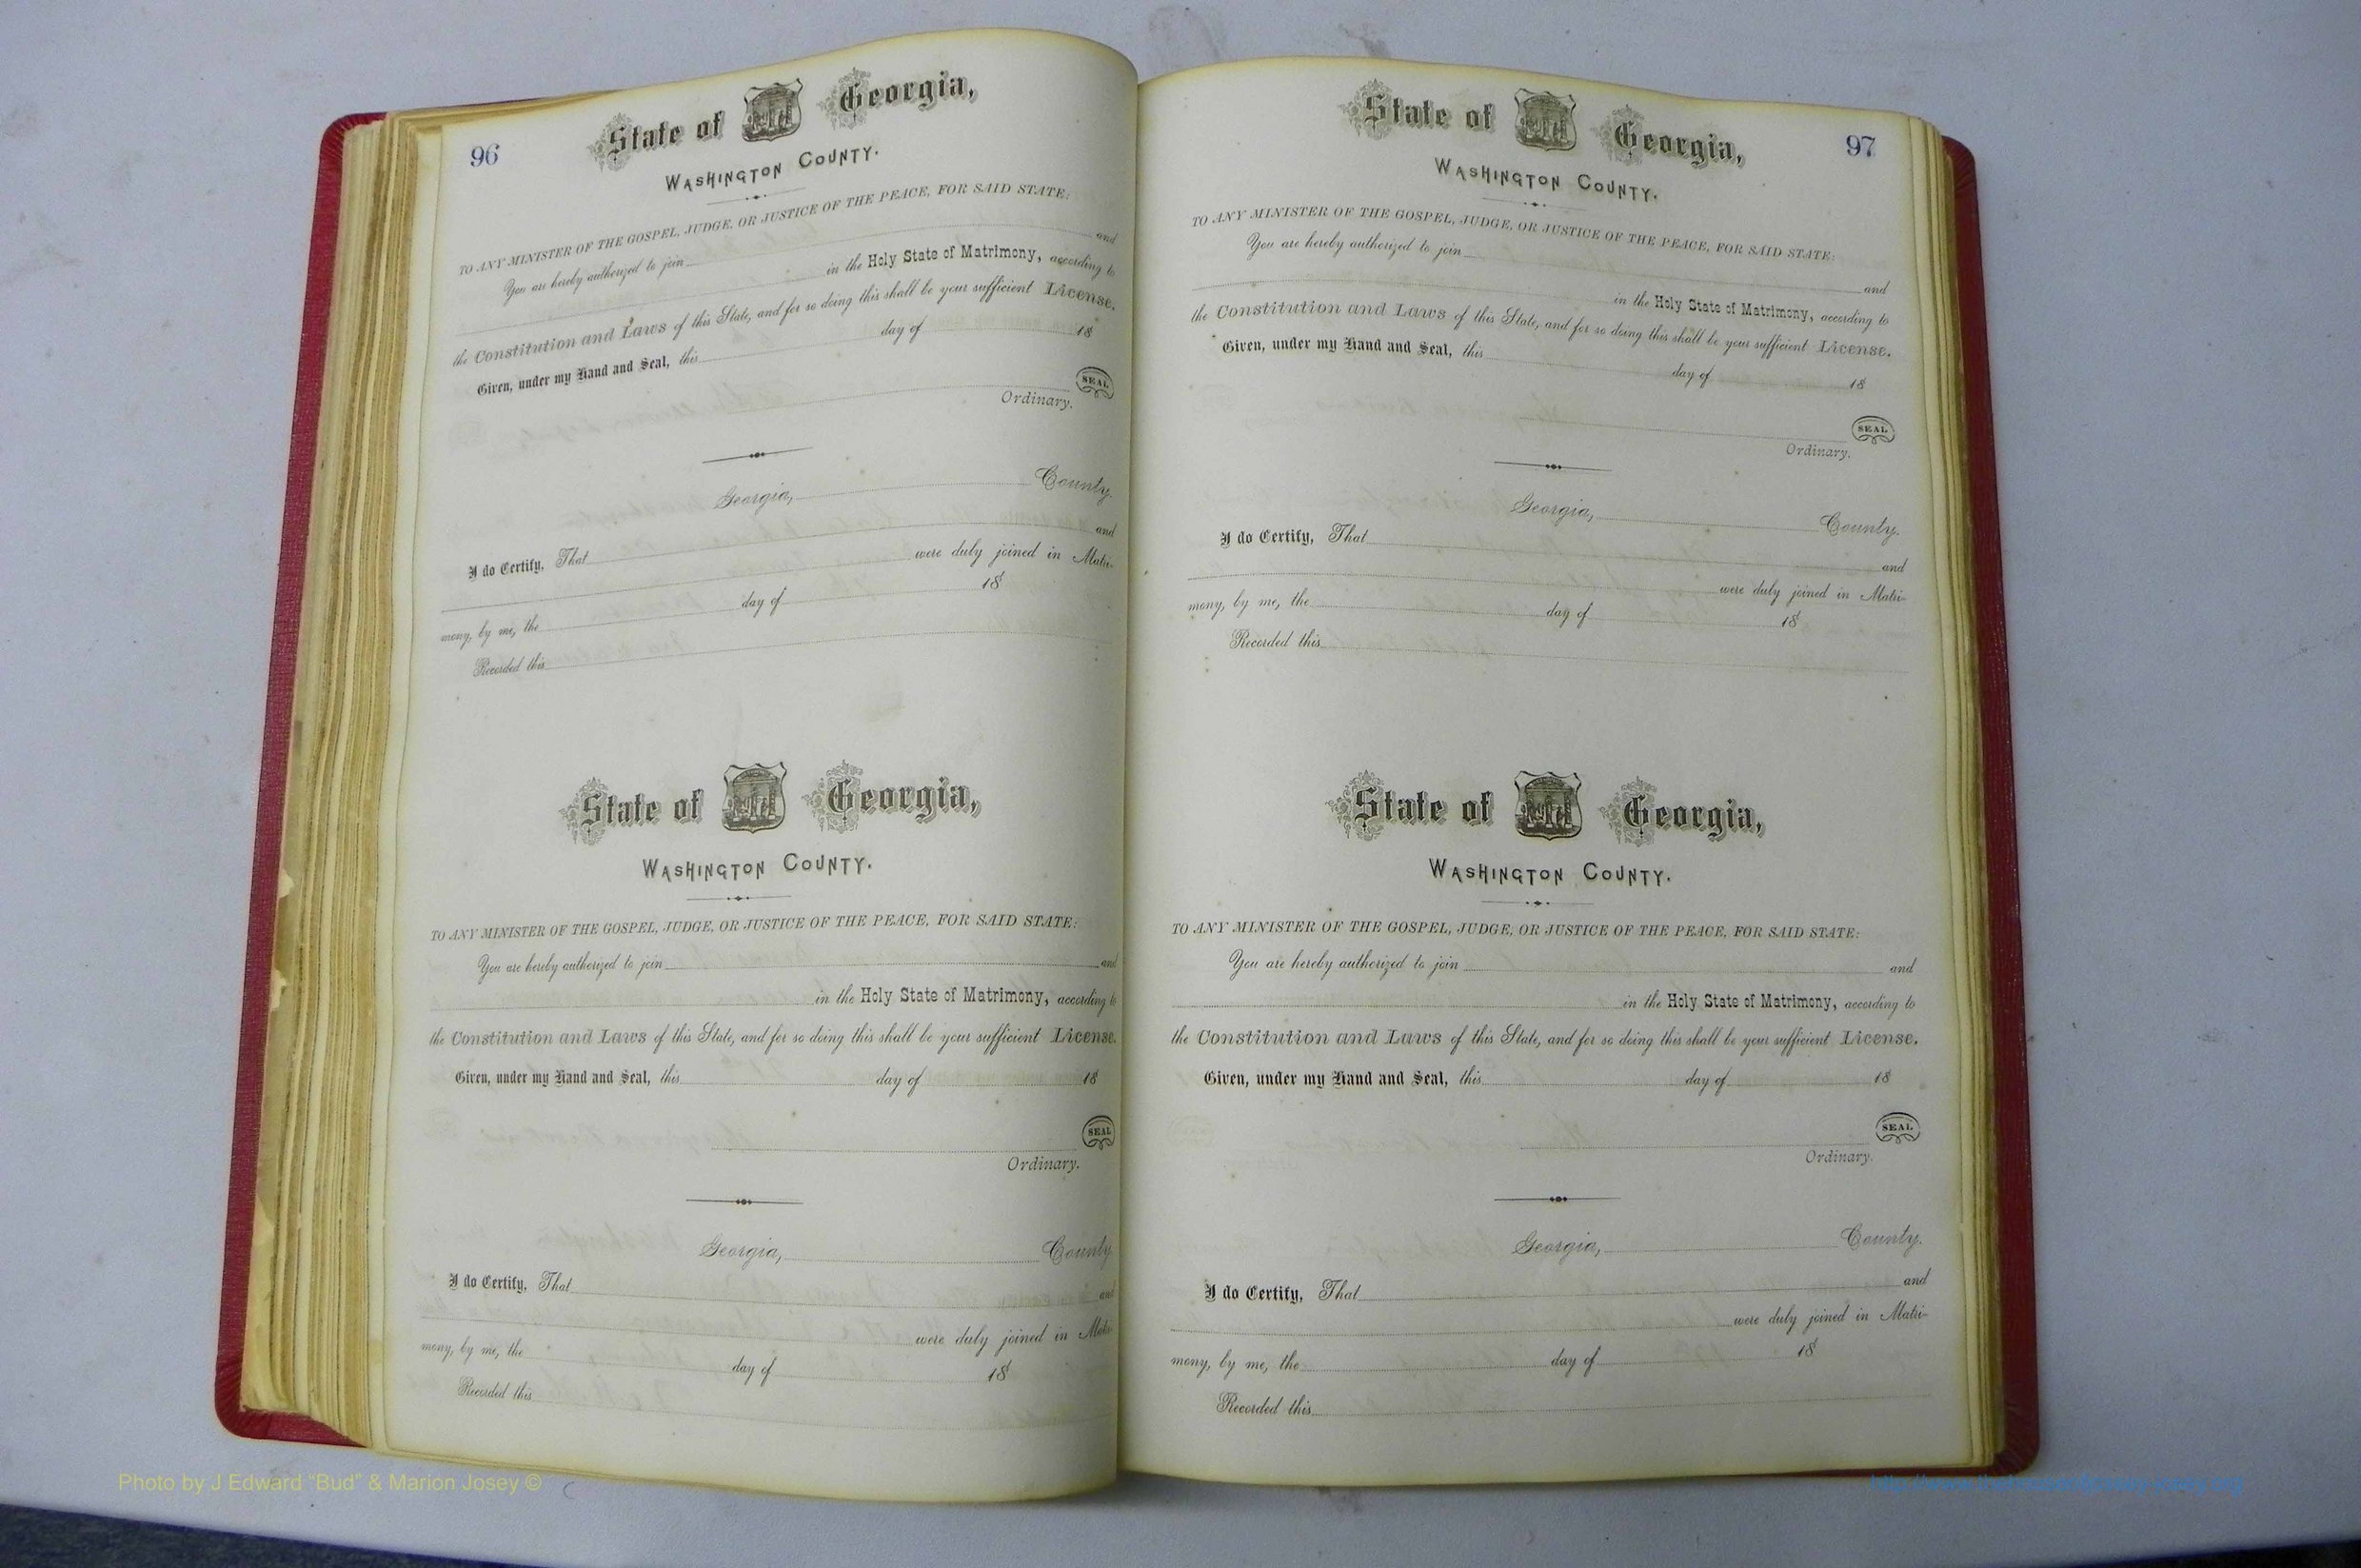 96
State of Georgia,
WASHINGTON COUNTY.
TO ANY MINISTER OF THE GOSPEL, JUDGE, OR JUSTICE OF THE PEACE, FOR SAID STATE:
You are hereby authorized to join and
in the Holy State of Matrimony, according to
the Constitution and Laws of this State, and for so doing this shall be your sufficient License.
Given, under my Hand and Seal, this day of 18
SEAL
Ordinary.
Georgia, County.
I do Certify, That and
were duly joined in Matri-
mony, by me, the day of 18
Recorded this
State of Georgia,
WASHINGTON COUNTY.
TO ANY MINISTER OF THE GOSPEL, JUDGE, OR JUSTICE OF THE PEACE, FOR SAID STATE:
You are hereby authorized to join and
in the Holy State of Matrimony, according to
the Constitution and Laws of this State, and for so doing this shall be your sufficient License.
Given, under my Hand and Seal, this day of 18
SEAL
Ordinary.
Georgia, County
I do Certify, That and
were duly joined in Matri-
mony, by me, the day of 18
Recorded this
97
State of Georgia,
WASHINGTON COUNTY.
TO ANY MINISTER OF THE GOSPEL, JUDGE, OR JUSTICE OF THE PEACE, FOR SAID STATE:
You are hereby authorized to join
and
in the Holy State of Matrimony, according to
the Constitution and Laws of this State, and for so doing this shall be your sufficient License.
Given, under my Hand and Seal, this day of 18
SEAL
Ordinary.
Georgia, County.
I do Certify, That
and
were duly joined in Matri-
mony, by me, the day of 18
Recorded this
State of Georgia,
WASHINGTON COUNTY.
TO ANY MINISTER OF THE GOSPEL, JUDGE, OR JUSTICE OF THE PEACE, FOR SAID STATE:
You are hereby authorized to join and
in the Holy State of Matrimony, according to
the Constitution and Laws of this State, and for so doing this shall be your sufficient License.
Given, under my Hand and Seal, this day of 18
SEAL
Ordinary.
Georgia, County.
I do Certify, That and
were duly joined in Matri-
mony, by me, the day of 18
Recorded this
Photo by J Edward “Bud” & Marion Josey ©